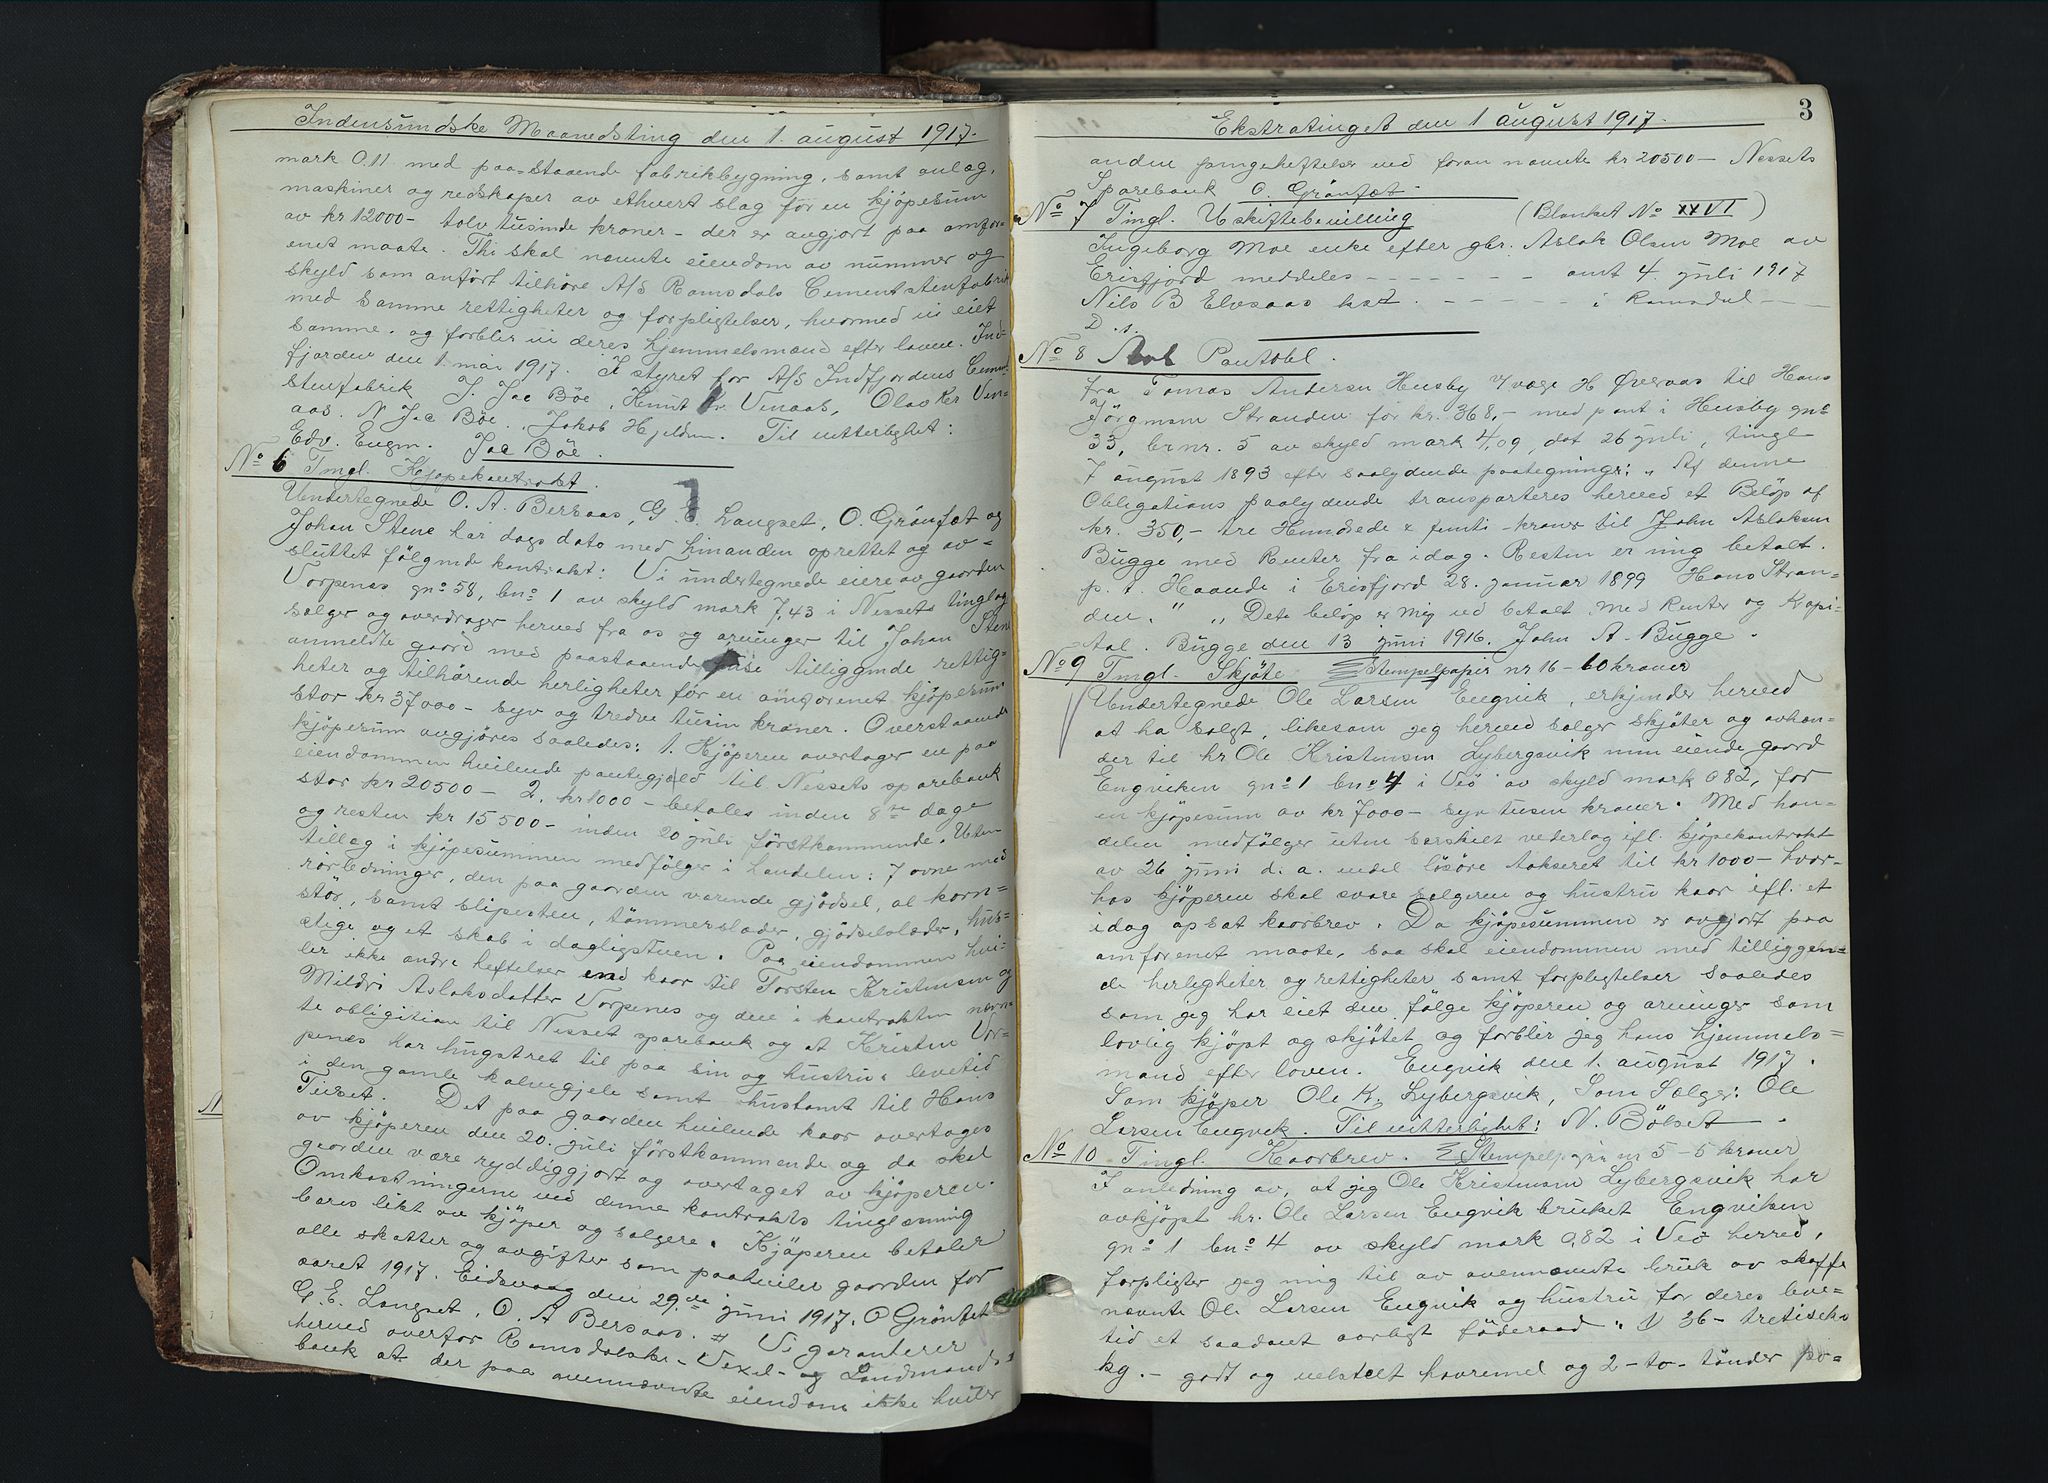 Indensundske Maanedsting den 1. august 1917.
mark 0.11 med paa-staaende fabrikbygning, samt anlæg,
maskiner og redskaper av ethvert slag for en kjöpesum
av kr 12000- tolv tusinde kroner - der er avgjort paa omfor-
enet maate. Thi skal nævnte eiendom av nummer og
skyld som anfört tilhöre A/S Romsdals Cementstenfabrik
med samme rettigheter og forpligtelser, hvormed vi eiet
samme. og forblir vi deres hjemmelsmænd efter loven. Ind-
fjorden den 1. mai 1917. I styret for A/S Indfjordens Cement-
stenfabrik J. Jac Böe, Knut Kr. Venaas, Olav Kr Ven-
aas. N Jac Böe. Jakob Hjelden. Til vitterlighet:
Edv. Engen. Jac Böe.
No 6 Tingl. Kjöpekontrakt.
Undertegnede O. A. Bersaas, G. E. Langset, O. Grönfæt og
Johan Stene har dags dato med hinanden oprettet og av-
sluttet fölgende kontrakt: Vi undertegnede eiere av gaarden
Vorpenes gno 58, bno 1 av skyld mark 7,43 i Nessets tinglag
sælger og overdrager herved fra os og arvinger til Johan Stene
anmeldte gaard med paastaaende huse tilliggende rettig-
heter og tilhörende herligheter for en omforenet kjöpesum
stor kr 37000- syv og tredve tusin kroner. Overstaaende
kjöpesum avgjöres saaledes: 1. Kjöperen overtager en paa
eiendommen hvilende pantegjæld til Nessets sparebank
stor kr 20500- 2. kr 1000- betales inden 8te dage
og resten kr 15500- inden 20 juli förstkommende. Uten
tillæg i kjöpesummen medfölger i handelen: 7 ovne med
rörledninger, den paa gaarden værende gjödsel, al korn-
stör, samt slipesten, tömmerslæder, gjödselslæder, hus-
stige og et skab i dagligstuen. Paa eiendommen hvi-
ler ikke andre heftelser end kaar til Torsten Kristensen og
Mildri Aslaksdatter Vorpenes og den i kontrakten nævn-
te obligation til Nesset sparebank og at Kristen Vor-
penes har hugstret til paa sin og hustrus levetid
i den gamle kalvegjele samt hustomt til Hans
Tuset. Det paa gaarden hvilende kaar overtages
av kjöperen den 20. juli förstkommende og da skal
gaarden være ryddiggjort og overtaget av kjöperen.
Omkostningerne ved denne kontrakts tinglæsning
bæres likt av kjöper og sælgere. Kjöperen betaler
alle skatter og avgifter som paahviler gaarden for
aaret 1917. Eidsvaag den 29.de juni 1917. O Grönfæt
G. E. Langset, O. A Bersaas. Vi garanterer
herved overfor Romsdalske- Vexel- og Landmands-
bank at der paa ovennævnte eiendom ikke hviler
Ekstratinget den 1 august 1917. 3
andre pengeheftelser end foran nævnte kr 20500- Nessets
Sparebank O. Grönfæt
No 7 Tingl. Uskiftebevilling (Blanket No XXVI)
Ingeborg Moe enke efter gbr. Aslak Olsen Moe av
Erisfjord meddeles - - - - - - - amt 4. juli 1917
Nils B Elvsaas kst. - - - - - i Romsdal -
D. s.
No 8 Avl Pantobl.
fra Tomas Andersen Husby v/ væge H Överaas til Hans
Jörgensen Stranden for kr. 368,- med pant i Husby gno
33, brnr. 5 av skyld mark 4,09, dat 26 juli, tingl
7 august 1893 efter saalydende paategninger: "Af denne
Obligations paalydende transporteres herved et Belöp af
kr. 350,- tre Hundrede & femti- kroner til John Aslaksen
Bugge med Renter fra idag. Resten er mig betalt.
p. t. Haande i Erisfjord 28. januar 1899 Hans Stran-
den." "Dette belöp er mig ud betalt med Renter og Kapi-
tal. Bugge den 13 juni 1916. John A. Bugge.
No 9 Tingl. Skjöte Stempelpapir nr 16 - 60 kroner
Undertegnede Ole Larsen Engvik, erkjender herved
at ha solgt, likesom jeg herved sælger skjöter og avhæn-
der til hr Ole Kristensen Lybergsvik min eiende gaard
Engviken gno 1 bno 4 i Veö av skyld mark 0 82, for
en kjöpesum av kr 7000- syv tusen kroner. Med han-
delen medfölger uten særskilt vederlag ifl. kjöpekontrakt
av 26 juni d. a. endel lösöre takseret til kr 1000- hvor-
hos kjöperen skal svare sælgeren og hustru kaar ifl. et
idag opsat kaarbrev. Da kjöpesummen er avgjort paa
omforenet maate, saa skal eiendommen med tilliggen-
de herligheter og rettigheter samt forpligtelser saaledes
som jeg har eiet den fölge kjöperen og arvinger som
lovlig kjöpt og skjötet og forblir jeg hans hjemmels-
mand efter loven. Engvik den 1. august 1917.
Som kjöper Ole K. Lybergsvik, Som Sælger: Ole
Larsen Engvik. Til vitterlighet: N. Bölset
No 10 Tingl. Kaarbrev. Stempelpapir nr 5 - 5 kroner
I anledning av, at jeg Ole Kristensen Lybergsvik har
avkjöpt hr. Ole Larsen Engvik bruket Engviken
gno 1 bno 4 av skyld mark 0,82 i Veö herred,
forpligter jeg mig til av ovennævnte bruk av skaffe
nævnte Ole Larsen Engvik og hustru for deres leve-
tid et saadant aarligt föderaad: 1) 36- tretiseks
kg. - godt og velstelt havremel og 2-to- tönder po-